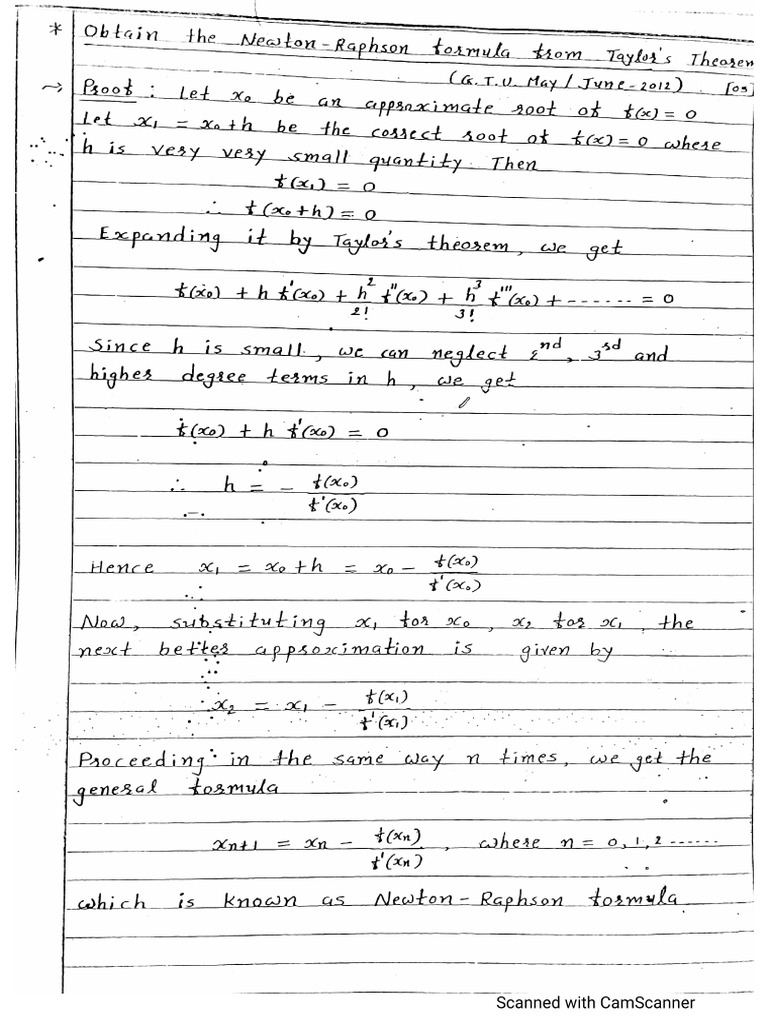 * Obtain the Newton-Raphson formula from Taylor's Theorem
(G.T.U. May/June-2012) [03]
→ Proof : Let x₀ be an approximate root of f(x) = 0
Let x₁ = x₀+h be the correct root of f(x) = 0 where
h is very very small quantity. Then
f(x₁) = 0
∴ f(x₀+h) = 0
Expanding it by Taylor's theorem, we get
f(x₀) + h f'(x₀) + h²/2! f''(x₀) + h³/3! f'''(x₀) + ------- = 0
Since h is small, we can neglect 2nd, 3rd and
higher degree terms in h, we get
f(x₀) + h f'(x₀) = 0
∴ h = - f(x₀)/f'(x₀)
Hence x₁ = x₀ + h = x₀ - f(x₀)/f'(x₀)
Now, substituting x₁ for x₀, x₂ for x₁, the
next better approximation is given by
x₂ = x₁ - f(x₁)/f'(x₁)
Proceeding in the same way n times, we get the
general formula
xₙ₊₁ = xₙ - f(xₙ)/f'(xₙ), where n = 0, 1, 2 -------
which is known as Newton-Raphson formula
Scanned with CamScanner